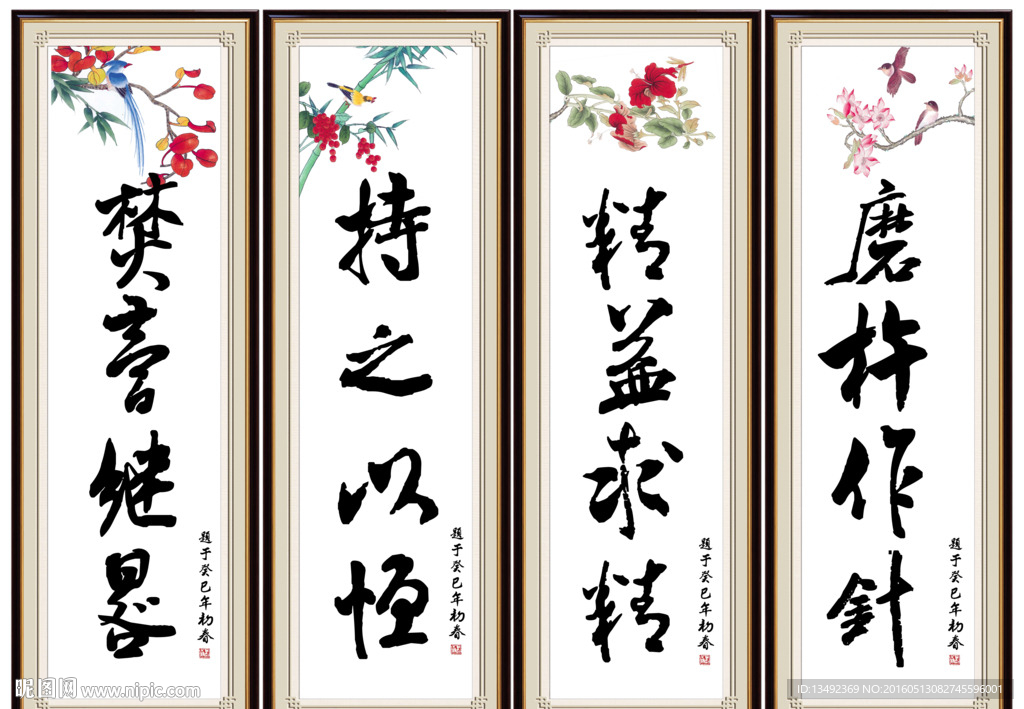 焚膏继晷
題于癸巳年初春
持之以恒
題于癸巳年初春
精益求精
題于癸巳年初春
磨杵作針
題于癸巳年初春
昵图网 www.nipic.com
ID:13492369 NO:20160513082745596001